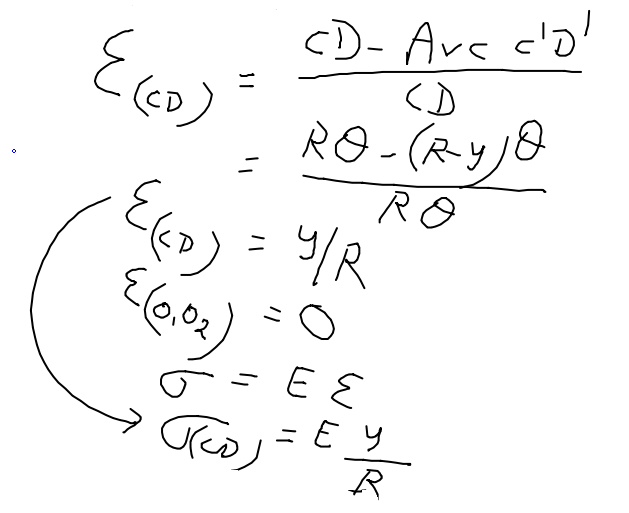 ε(CD) = (CD - Arc C'D') / CD
= (Rθ - (R-y)θ) / Rθ
ε(CD) = y/R
ε(O₁O₂) = 0
σ = E ε
σ(CD) = E y/R